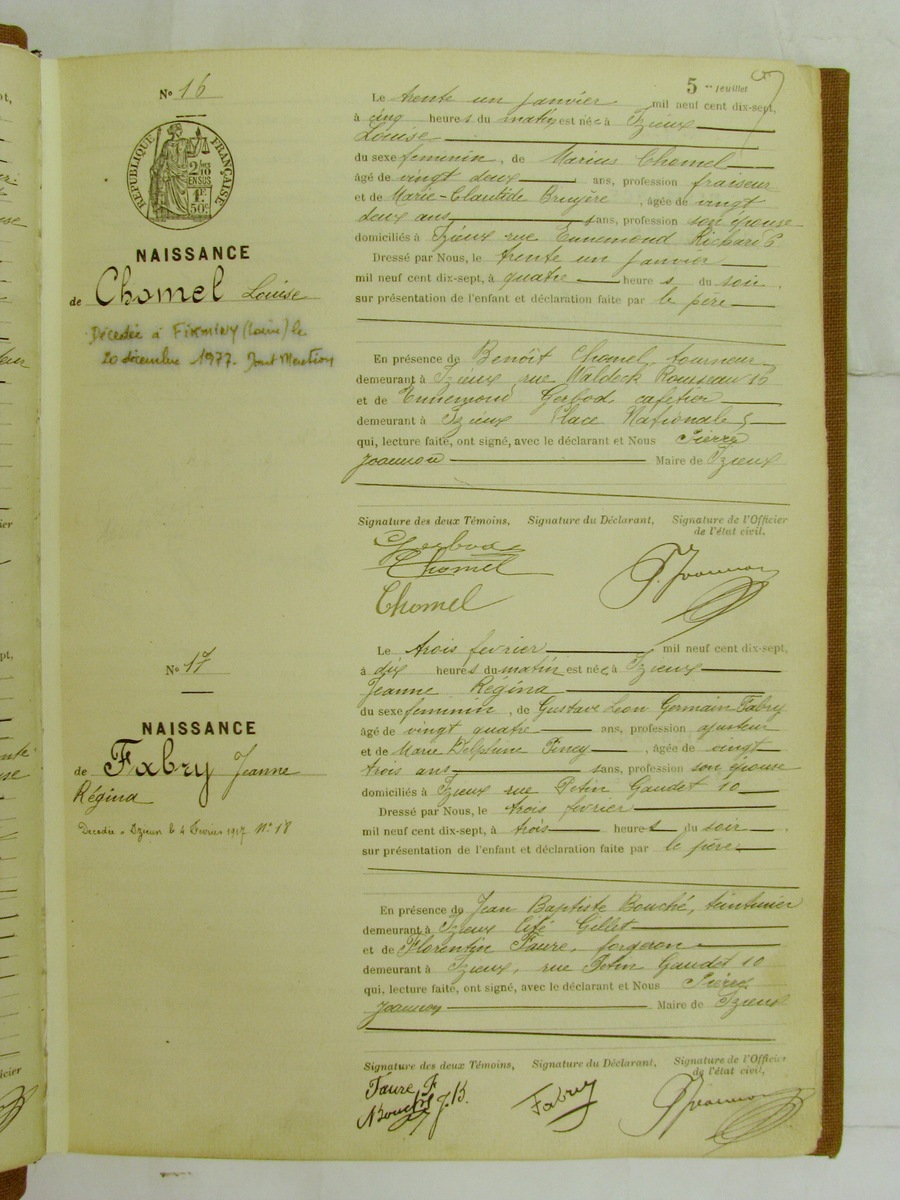 5 me feuillet
N° 16
RÉPUBLIQUE FRANÇAISE
2/10 EN SUS
1F 50c
NAISSANCE
de Chomel Louise
Décédée à Firminy (Loire) le
20 décembre 1977. Dont Mention
Le trente un janvier mil neuf cent dix-sept,
à cinq heures du matin est née à Izieux
Louise
du sexe feminin, de Marius Chomel
âgé de vingt deux ans, profession fraiseur
et de Marie-Claudide Bruyère, âgée de vingt
deux ans sans, profession son épouse
domiciliés à Izieux rue Ennemond Richard 6
Dressé par Nous, le trente un janvier
mil neuf cent dix-sept, à quatre heures du soir,
sur présentation de l'enfant et déclaration faite par le père
En présence de Benoît Chomel, tourneur
demeurant à Izieux, rue Waldeck Rousseau 16
et de Ennemond Gerbod, cafetier
demeurant à Izieux Place Nationale 5
qui, lecture faite, ont signé, avec le déclarant et Nous Pierre
Joannon Maire de Izieux
Signature des deux Témoins, Signature du Déclarant, Signature de l'Officier
de l'état civil,
Gerbod
Chomel
Chomel
P. Joannon
N° 17
NAISSANCE
de Fabry Jeanne
Régina
Decedée a Izieux le 4 Fevrier 1917 N° 18
Le trois fevrier mil neuf cent dix-sept,
à dix heures du matin est née à Izieux
Jeanne Régina
du sexe feminin, de Gustave Leon Germain Fabry
âgé de vingt quatre ans, profession ajusteur
et de Marie Delphine Piney, âgée de vingt
trois ans sans, profession son épouse
domiciliés à Izieux rue Petin Gaudet 10
Dressé par Nous, le trois fevrier
mil neuf cent dix-sept, à trois heures du soir,
sur présentation de l'enfant et déclaration faite par le père
En présence de Jean Baptiste Bouché, teinturier
demeurant à Izieux Cité Gillet
et de Florentin Faure, forgeron
demeurant à Izieux, rue Petin Gaudet 10
qui, lecture faite, ont signé, avec le déclarant et Nous Pierre
Joannon Maire de Izieux
Signature des deux Témoins, Signature du Déclarant, Signature de l'Officier
de l'état civil,
Faure F
Bouché J.B.
Fabry
P. Joannon